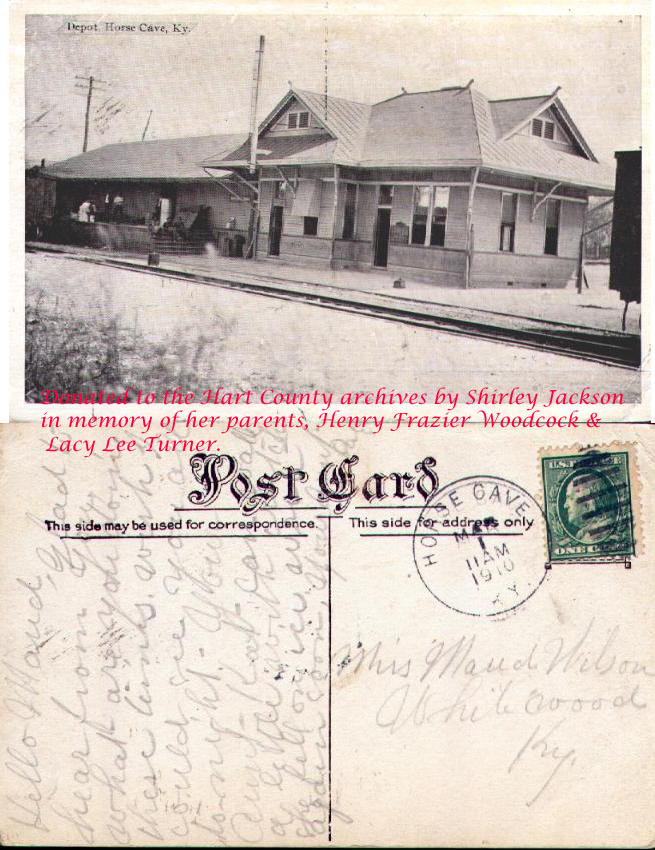 Depot, Horse Cave, Ky.
Donated to the Hart County archives by Shirley Jackson
in memory of her parents, Henry Frazier Woodcock &
Lacy Lee Turner.
Post Card
This side may be used for correspondence.
This side for address only
HORSE CAVE
MAR
1
11AM
1910
KY.
U.S. POSTAGE
ONE CENT
Hello Maud, Glad to
hear from you
what are you doing
these times. wish I
could see you
to night. You
Miss Maud Wilson
Whitewood
Ky.